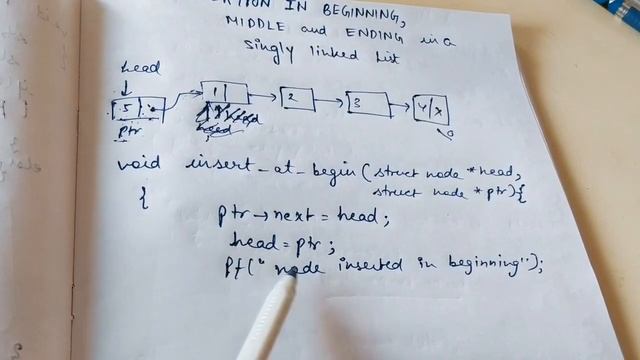 IN BEGINNING,
MIDDLE and ENDING in a
singly linked list
head
5 1 2 3 4 X
ptr
void insert_at_begin(struct node *head,
struct node *ptr){
{
ptr→next = head;
head = ptr;
Pf(" node inserted in beginning");